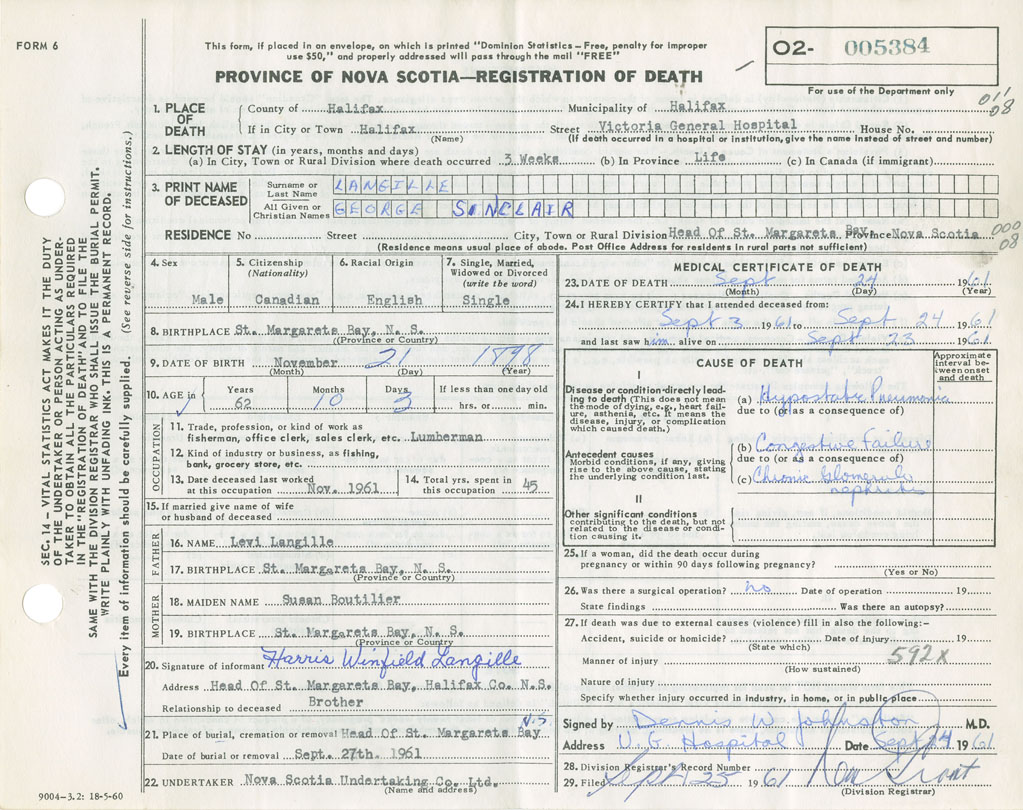 FORM 6
This form, if placed in an envelope, on which is printed "Dominion Statistics – Free, penalty for improper
use $50," and properly addressed will pass through the mail "FREE"
PROVINCE OF NOVA SCOTIA—REGISTRATION OF DEATH
O2- 005384
For use of the Department only
011
08
SEC. 14 – VITAL STATISTICS ACT MAKES IT THE DUTY
OF THE UNDERTAKER OR PERSON ACTING AS UNDER-
TAKER "TO OBTAIN ALL THE PARTICULARS REQUIRED
IN THE "REGISTRATION OF DEATH" AND TO FILE THE
SAME WITH THE DIVISION REGISTRAR WHO SHALL ISSUE THE BURIAL PERMIT.
WRITE PLAINLY WITH UNFADING INK. THIS IS A PERMANENT RECORD.
Every item of information should be carefully supplied. (See reverse side for instructions.)
1. PLACE OF DEATH
County of Halifax Municipality of Halifax
If in City or Town Halifax Street Victoria General Hospital House No.
(Name) (If death occurred in a hospital or institution, give the name instead of street and number)
2. LENGTH OF STAY (in years, months and days)
(a) In City, Town or Rural Division where death occurred 3 Weeks (b) In Province Life (c) In Canada (if immigrant)
3. PRINT NAME OF DECEASED
Surname or Last Name LANGILLE
All Given or Christian Names GEORGE SINCLAIR
RESIDENCE No Street City, Town or Rural Division Head Of St. Margarets Bay, Province Nova Scotia
000
08
(Residence means usual place of abode. Post Office Address for residents in rural parts not sufficient)
4. Sex Male
5. Citizenship (Nationality) Canadian
6. Racial Origin English
7. Single, Married, Widowed or Divorced (write the word) Single
8. BIRTHPLACE St. Margarets Bay, N. S.
(Province or Country)
9. DATE OF BIRTH November 21 1898
(Month) (Day) (Year)
10. AGE in Years 62 Months 10 Days 3 If less than one day old hrs. or min.
OCCUPATION
11. Trade, profession, or kind of work as
fisherman, office clerk, sales clerk, etc. Lumberman
12. Kind of industry or business, as fishing,
bank, grocery store, etc.
13. Date deceased last worked at this occupation Nov. 1961 14. Total yrs. spent in this occupation 45
15. If married give name of wife
or husband of deceased
FATHER
16. NAME Levi Langille
17. BIRTHPLACE St. Margarets Bay, N. S.
(Province or Country)
MOTHER
18. MAIDEN NAME Susan Boutilier
19. BIRTHPLACE St. Margarets Bay, N. S.
(Province or Country)
20. Signature of informant Harris Winfield Langille
Address Head Of St. Margarets Bay, Halifax Co. N.S.
Relationship to deceased Brother
N.S
21. Place of burial, cremation or removal Head Of St. Margarets Bay
Date of burial or removal Sept. 27th. 1961
22. UNDERTAKER Nova Scotia Undertaking Co. Ltd.
(Name and address)
9004-3.2: 18-5-60
MEDICAL CERTIFICATE OF DEATH
23. DATE OF DEATH Sept 24 1961
(Month) (Day) (Year)
24. I HEREBY CERTIFY that I attended deceased from:
Sept 3 1961 to Sept 24 1961
and last saw him alive on Sept 23 1961
CAUSE OF DEATH
Approximate interval between onset and death
I
Disease or condition directly lead-
ing to death (This does not mean
the mode of dying, e.g., heart fail-
ure, asthenia, etc. It means the
disease, injury, or complication
which caused death.)
(a) Hypostatic Pneumonia
due to (or as a consequence of)
Antecedent causes
Morbid conditions, if any, giving
rise to the above cause, stating
the underlying condition last.
(b) Congestive Failure
due to (or as a consequence of)
(c) Chronic Glomerulo
nephritis
II
Other significant conditions
contributing to the death, but not
related to the disease or condi-
tion causing it.
25. If a woman, did the death occur during
pregnancy or within 90 days following pregnancy?
(Yes or No)
26. Was there a surgical operation? no Date of operation 19
State findings Was there an autopsy?
27. If death was due to external causes (violence) fill in also the following:–
Accident, suicide or homicide? Date of injury 19
(State which)
592X
Manner of injury
(How sustained)
Nature of injury
Specify whether injury occurred in industry, in home, or in public place
Signed by Dennis W Johnston M.D.
Address V.G. Hospital Date Sept 24 1961
28. Division Registrar's Record Number
29. Filed Sept 25 1961 Grant
(Division Registrar)